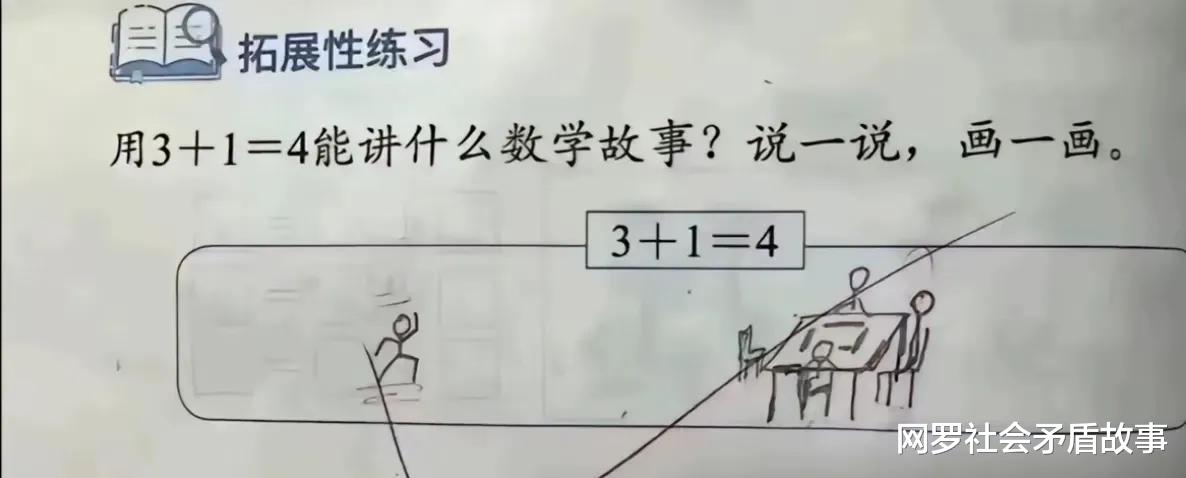 拓展性练习
用3+1=4能讲什么数学故事？说一说，画一画。
3+1=4
网罗社会矛盾故事